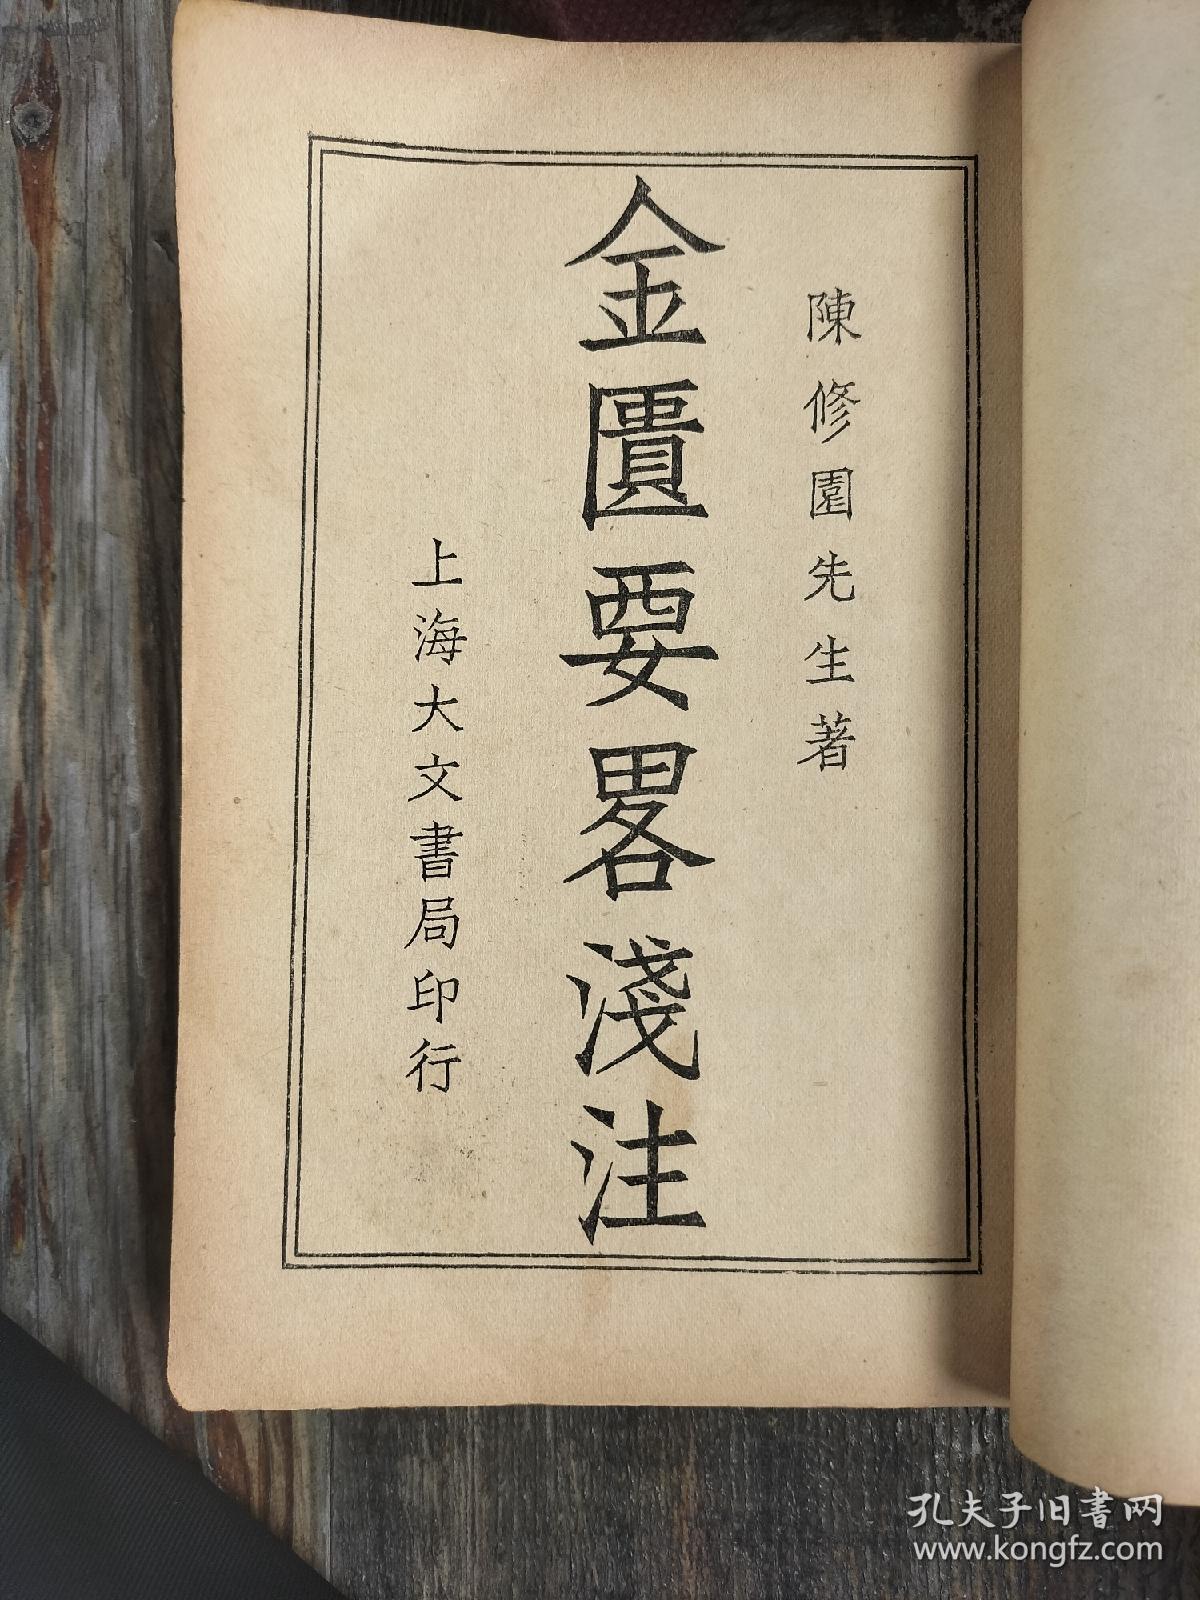 陳修園先生著
金匱要畧淺注
上海大文書局印行
孔夫子旧書网
www.kongfz.com